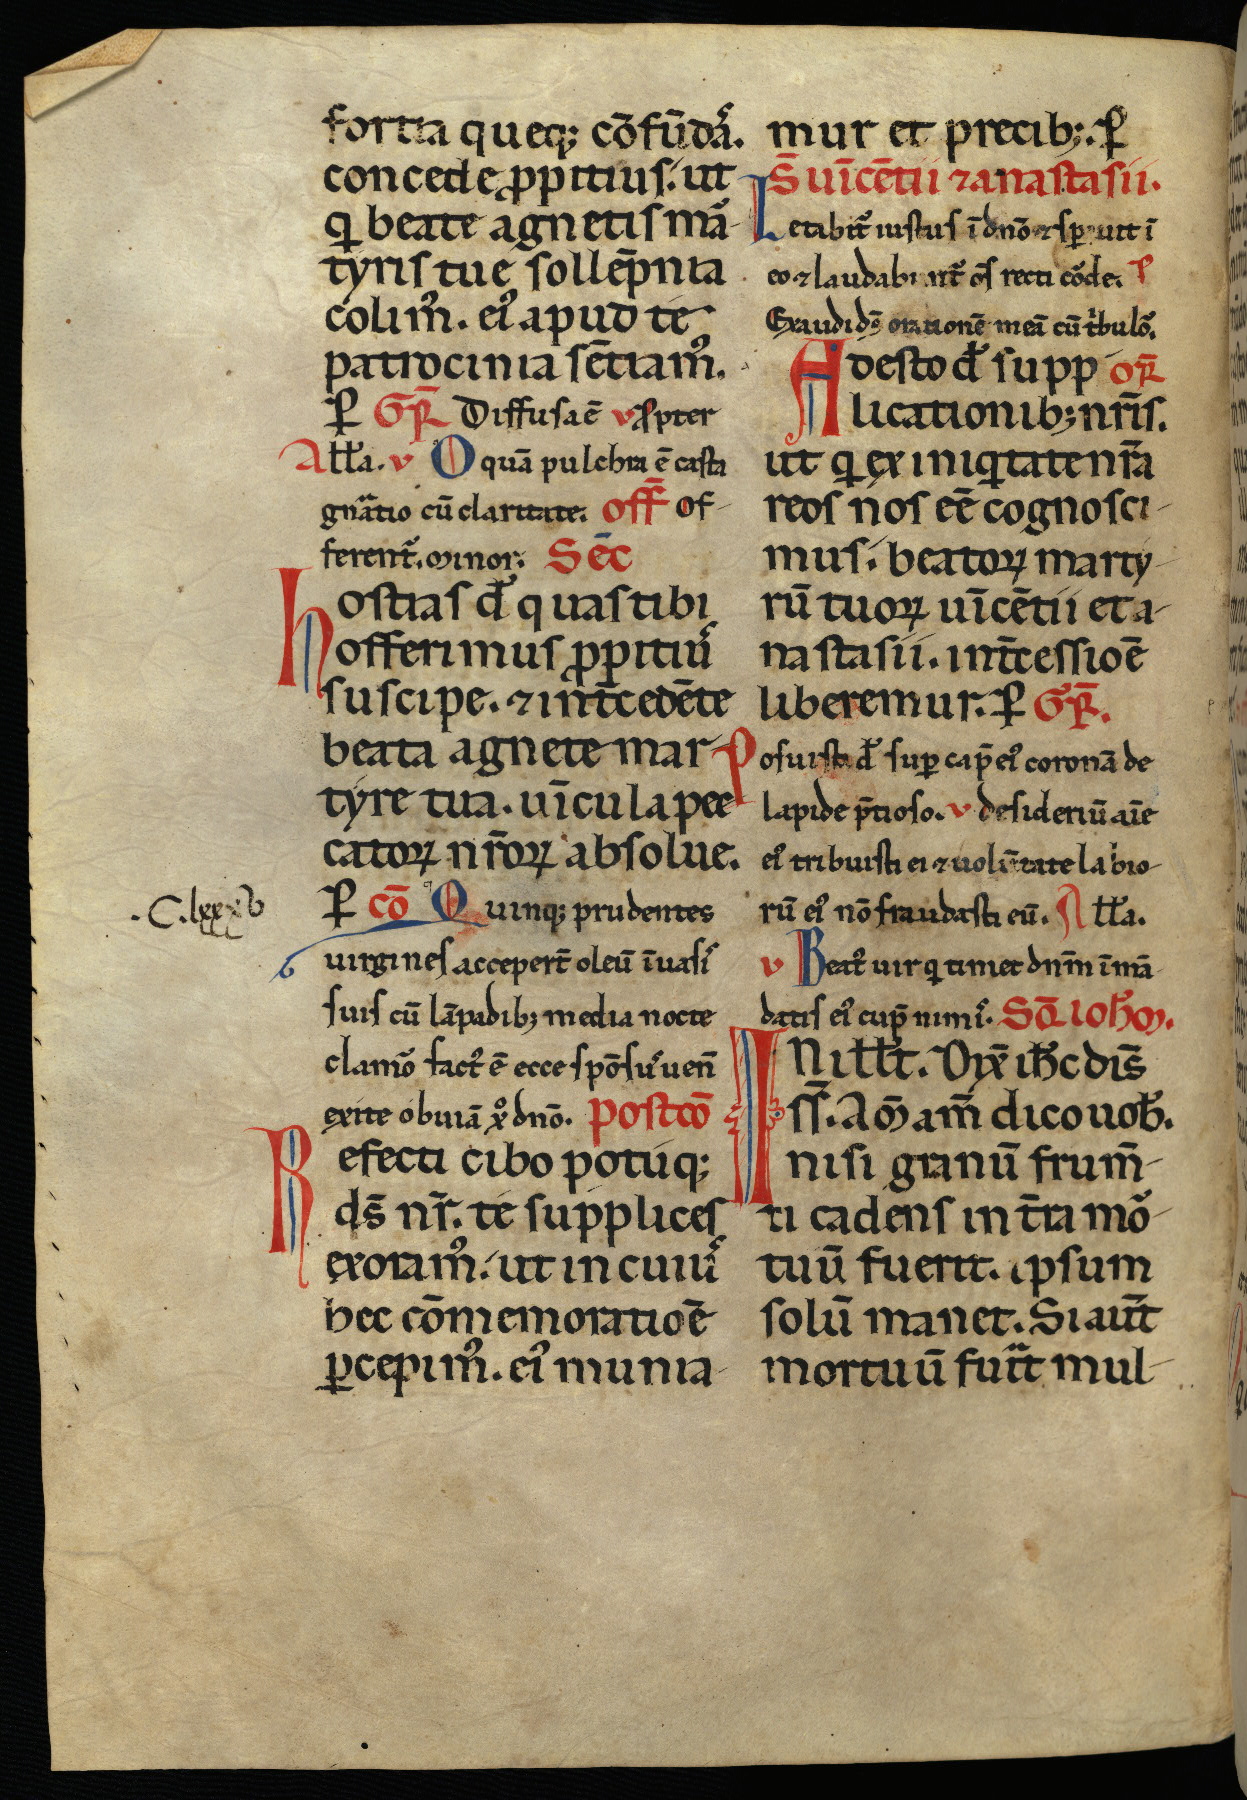 fortia queq; cōfūdā.
concede ꝓpitius. ut
q beate agnetis mā-
tyris tue sollēpnia
colim᾽. ei᾽ apud te
patrocinia sētiam᾽.
P GR̄ Diffusa ē v ꝓpter
All̄a. v O quā pulchra ē casta
gnātio cū claritate. Off̄ Of-
ferent᾽. minor. Sēc
hostias d̄s quas tibi
offerimus ꝓpitiu᾽
suscipe. ⁊ int̄cedēte
beata agnete mar-
tyre tua. uīcula pec
catoꝝ nr̄oꝝ absolue.
.C.lxxxv
P cō Quinq; prudentes
uirgines acceper̄t oleū ī uasi᾽
suis cū lāpadib; media nocte
clamō fact᾽ ē ecce spōsu᾽ uen̄
exite obuiā xº dnō. postcō
Refecti cibo potuq;
ds̄ nr̄. te supplices
exoram᾽. ut in cuiu᾽
hec cōmemoratiōe
ꝑcepim᾽. ei᾽ munia-
mur et precib;. P
S̄ uīcētii ⁊ anastasii.
Letabit᾽ iustus ī dnō ⁊ sꝑauit ī
eo ⁊ laudabunt᾽ om̄s recti cōde. P
Exaudi ds̄ orationē meā cū t̄bulō.
Adesto d̄s supp or̄
licationib; nr̄is.
ut q ex iniqtate nr̄a
reos nos eē cognosci-
mus. beatoꝝ marty-
rū tuoꝝ uīcētii et a-
nastasii. int̄cessiōe
liberemur. P GR̄.
Posuisti d̄s suꝑ cap̄ ei᾽ coronā de
lapide p̄tioso. v desideriū aīe
ei᾽ tribuisti ei ⁊ uolūtate labio-
rū ei᾽ nō fraudasti eū. All̄a.
v Beat᾽ uir q timet dnm̄ ī mā-
datis ei᾽ cup̄ nimi᾽. Sc̄dm Ioh̄m.
IN ill̄t. Dix̄ ih̄c dis̄
ss̄. Am̄ am̄ dico uob̄.
nisi granū frum̄-
ti cadens in t̄ra mō-
tuū fuerit. ipsum
solū manet. Si aut̄
mortuū fuit̄ mul-